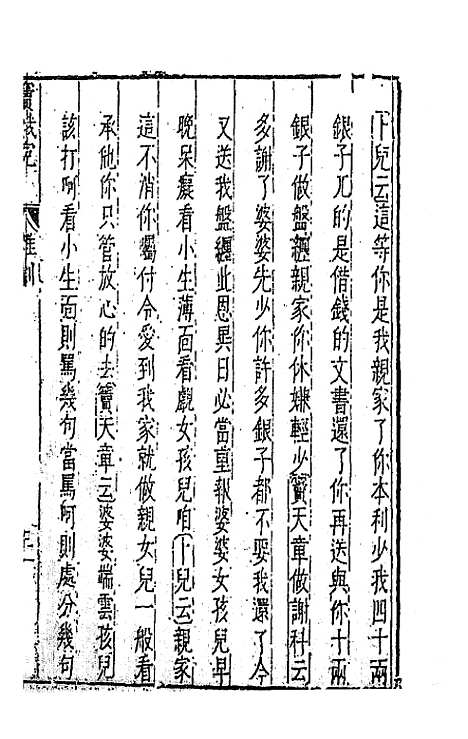 卜兒云這等你是我親家了你本利少我四十兩
銀子兀的是借錢的文書還了你再送與你十兩
銀子做盤纏親家你休嫌輕少竇天章做謝科云
多謝了婆婆先少你許多銀子都不要我還了今
又送我盤纏此恩異日必當重報婆婆女孩兒早
晚呆癡看小生薄面看覷女孩兒咱卜兒云親家
這不消你囑付令愛到我家就做親女兒一般看
承他你只管放心的去竇天章云婆婆端雲孩兒
該打呵看小生面則罵幾句當罵呵則處分幾句
竇娥冤
雜劇